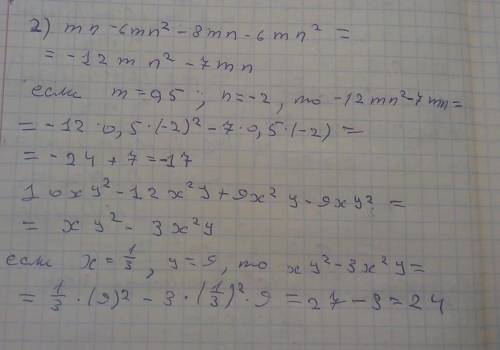 2) mn - 6mn² - 8mn - 6mn² =
= -12mn² - 7mn
если m = 0,5 ; n = -2, то -12mn² - 7mn =
= -12 · 0,5 · (-2)² - 7 · 0,5 · (-2) =
= -24 + 7 = -17
10xy² - 12x²y + 9x²y - 9xy² =
= xy² - 3x²y
если x = 1/3, y = 9, то xy² - 3x²y =
= 1/3 · (9)² - 3 · (1/3)² · 9 = 27 - 3 = 24